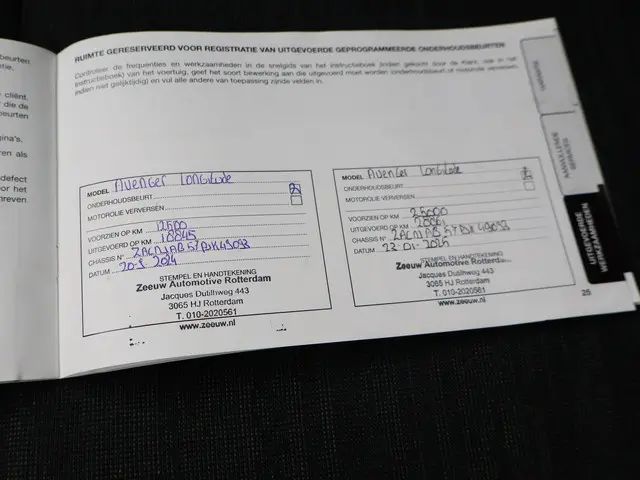 beurten
tie.
cliënt.
die de
beurten
ina's.
en als
defect
or het
hreven
RUIMTE GERESERVEERD VOOR REGISTRATIE VAN UITGEVOERDE GEPROGRAMMEERDE ONDERHOUDSBEURTEN
Controleer de frequenties en werkzaamheden in de
instructieboek) van het voertuig, geef het soort bewerking aan die uitgevoerd moet worden (onderhoudsbeurt of motorolie verversen,
indien niet gelijktijdig) en vul alle andere van toepassing zijnde velden in.
MODEL Avenger Longitude
ONDERHOUDSBEURT
MOTOROLIE VERVERSEN
VOORZIEN OP KM 12500
UITGEVOERD OP KM 10045
CHASSIS N°
DATUM 2024
STEMPEL EN HANDTEKENING
Zeeuw Automotive Rotterdam
Jacques Dutilhweg 443
3065 HJ Rotterdam
T. 010-2020561
www.zeeuw.nl
MODEL Avenger Longitude
ONDERHOUDSBEURT
MOTOROLIE VERVERSEN
VOORZIEN OP KM 25000
UITGEVOERD OP KM
CHASSIS N°
DATUM 23-01-2025
STEMPEL EN HANDTEKENING
Zeeuw Automotive Rotterda
Jacques Dutilhweg 443
3065 HJ Rotterdam
T. 010-2020561
www.zeeuw.nl
AANVULLENDE
SERVICES
UITGEVOERDE
WERKZAAMHEDEN
25